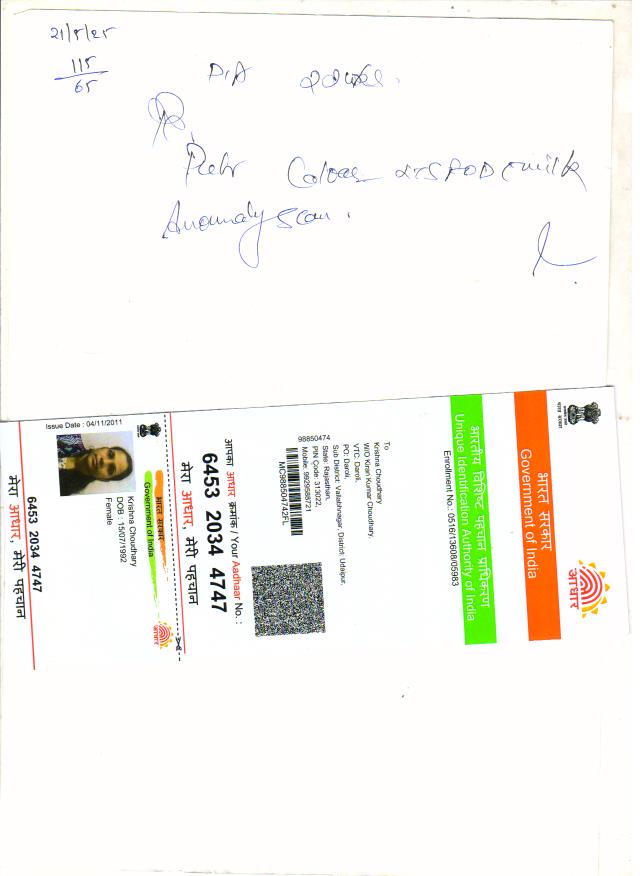 21/5/25
115
65
P/A
Anomaly Scan.
भारत सरकार
Government of India
आधार
भारतीय विशिष्ट पहचान प्राधिकरण
Unique Identification Authority of India
Enrollment No.: 0516/13608/05983
To
Krishna Choudhary
W/O Kiran Kumar Choudhary,
VTC: Daroli,
PO: Daroli,
Sub District: Vallabhnagar, District: Udaipur,
State: Rajasthan,
PIN Code: 313022,
98850474
MC988504742FL
आपका आधार क्रमांक / Your Aadhaar No. :
6453 2034 4747
मेरा आधार, मेरी पहचान
भारत सरकार
Government of India
Issue Date : 04/11/2011
Krishna Choudhary
DOB : 15/07/1992
Female
6453 2034 4747
मेरा आधार, मेरी पहचान